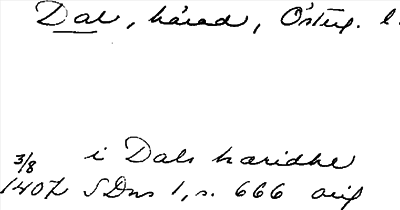 Dal, härad, Österg. l.
i Dals haridhe
3/8
1407 SDns 1, s. 666 orig